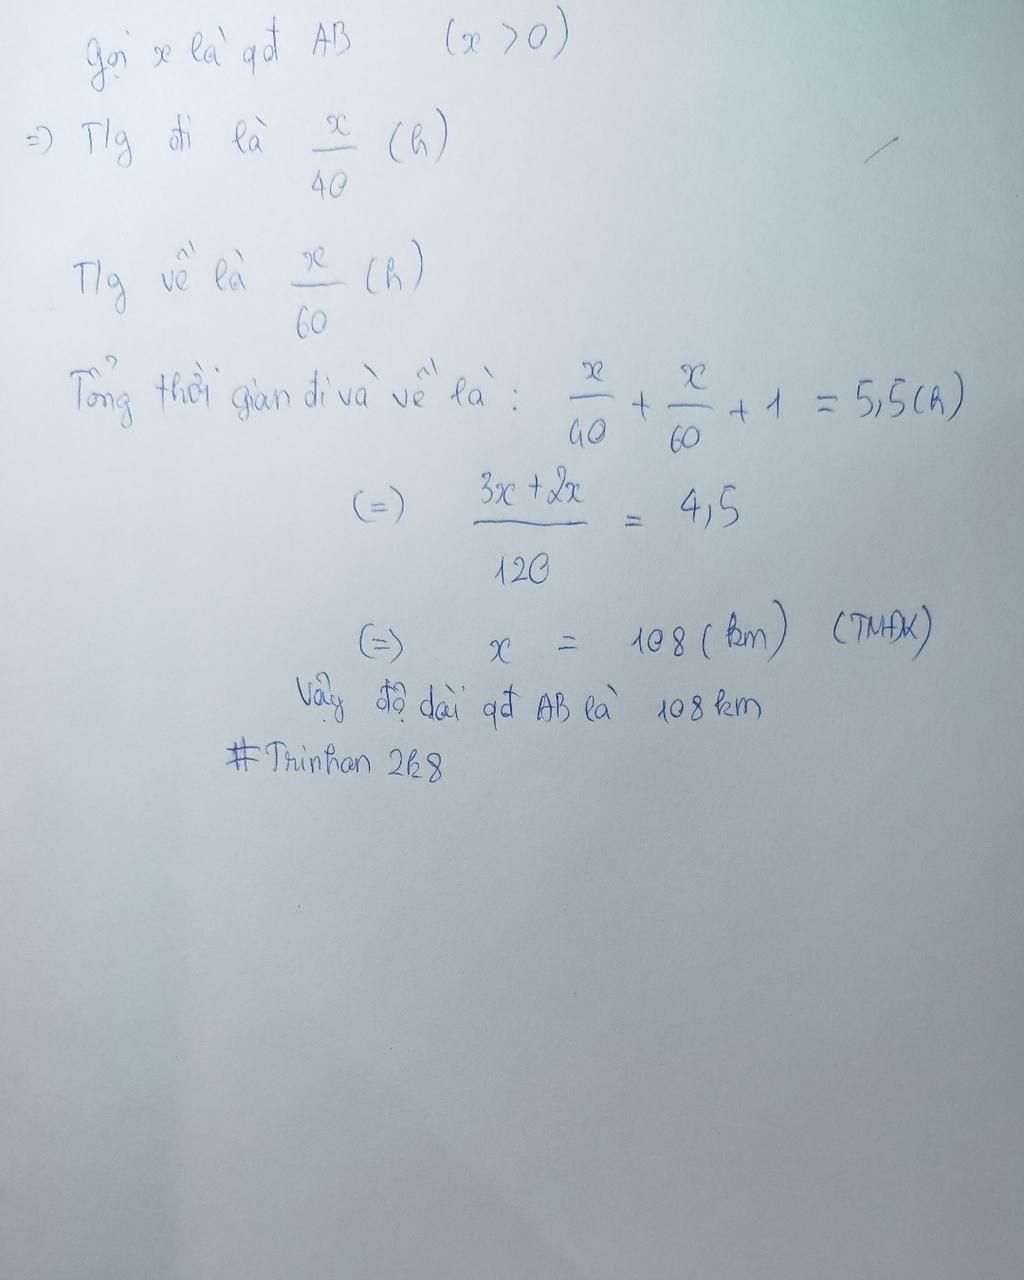 Gọi x là qđ AB (x > 0)
=) T/g đi là x/40 (h)
T/g về là x/60 (h)
Tổng thời gian đi và về là: x/40 + x/60 + 1 = 5,5(h)
(=) (3x + 2x)/120 = 4,5
(=) x = 108 (km) (TMĐK)
Vậy độ dài qđ AB là 108 km
# Trinhan 2k8